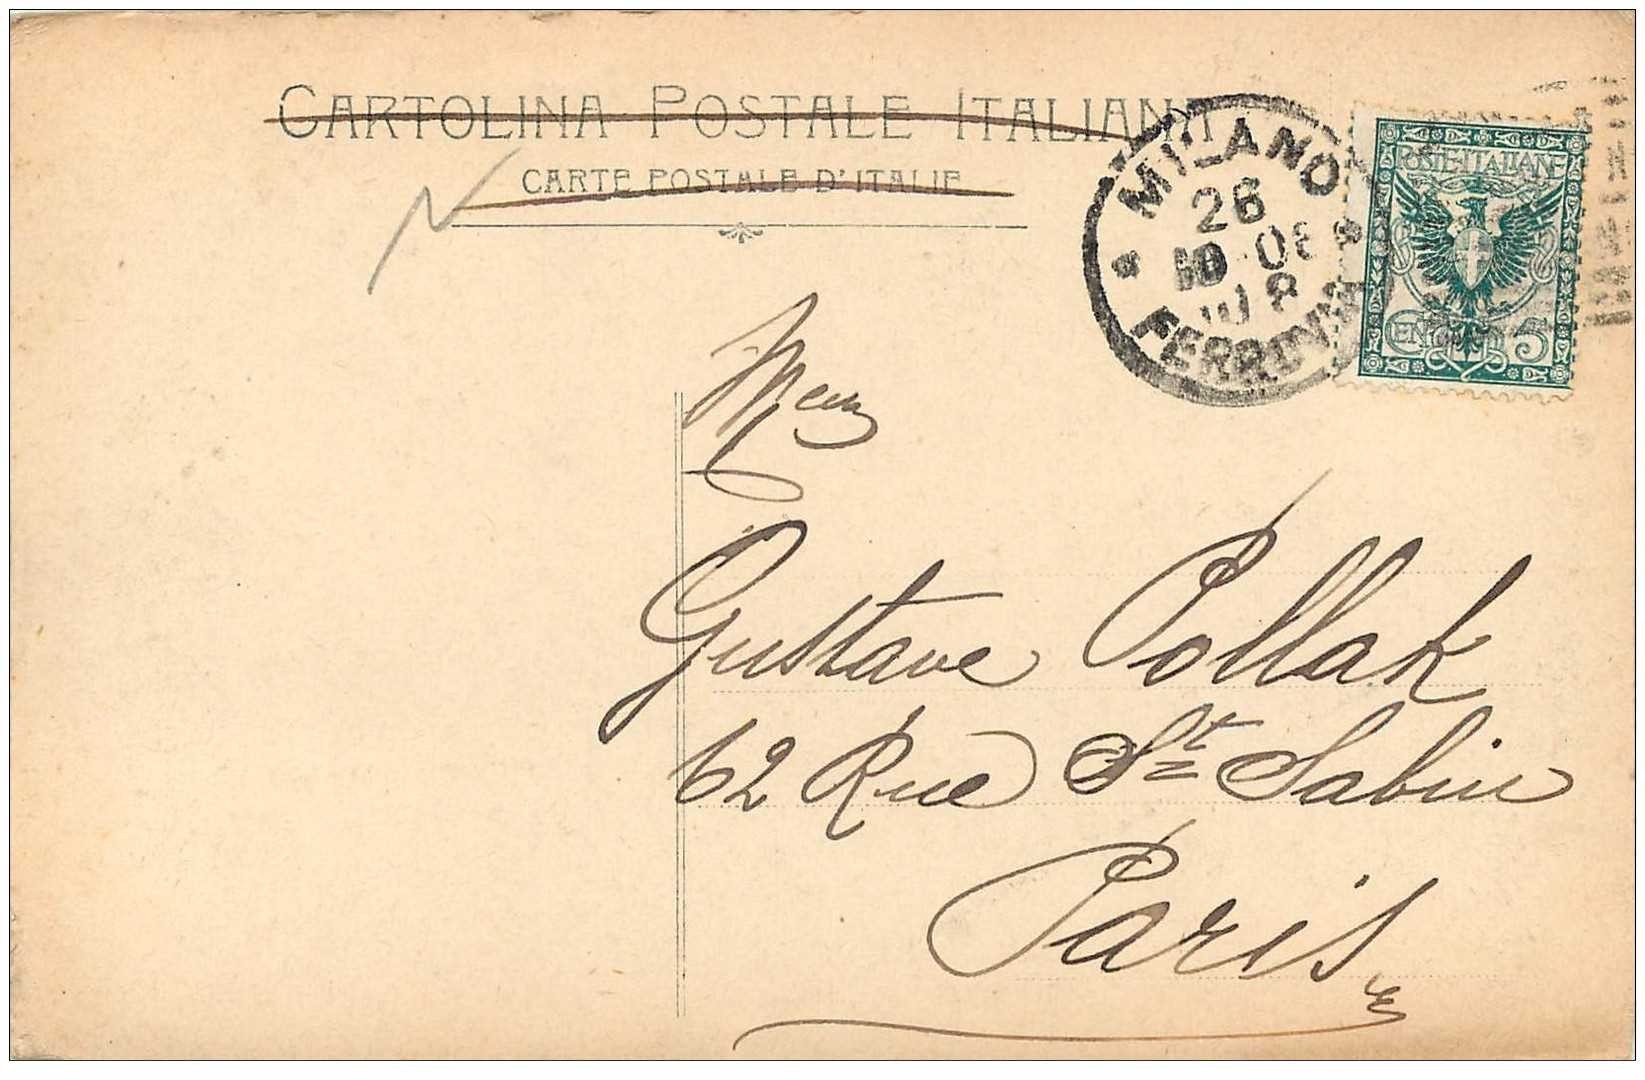 CARTOLINA POSTALE ITALIANA
CARTE POSTALE D'ITALIE
MILANO
26
FERROVIA
POSTE·ITALIANE
CENT 5
Gustave Pollak
62 Rue St Sabin
Paris